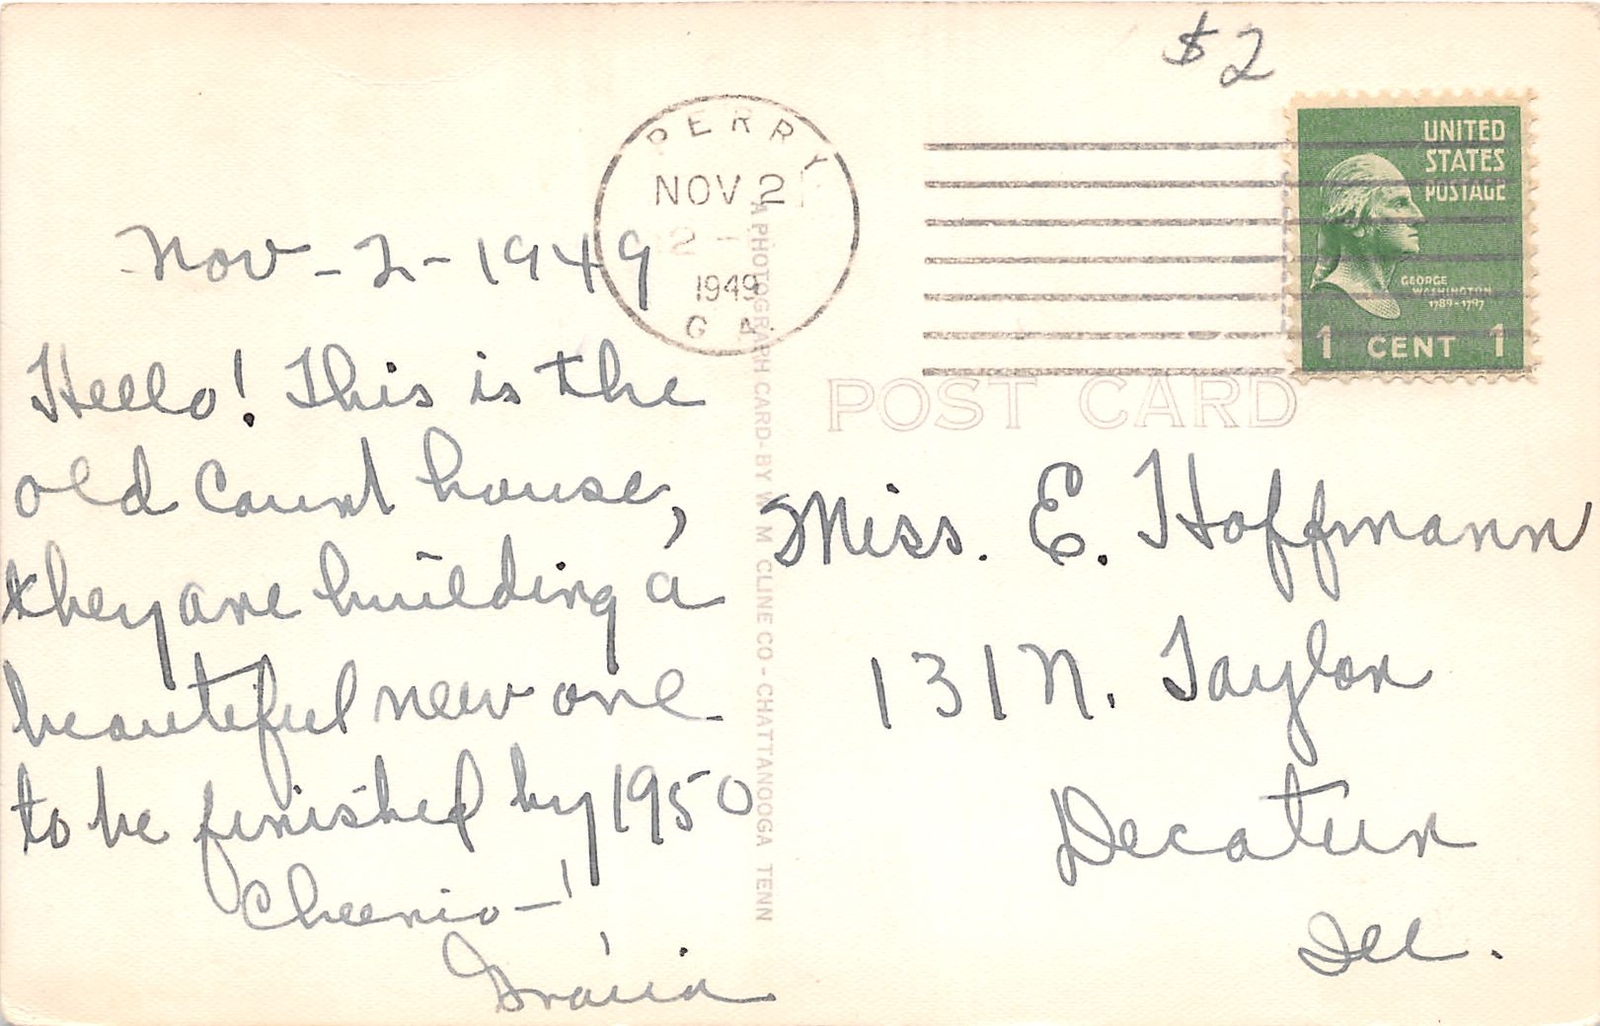 $2
PERRY
NOV 2
1949
GA.
UNITED
STATES
POSTAGE
GEORGE
WASHINGTON
1789-1797
1 CENT 1
POST CARD
A PHOTOGRAPH CARD-BY W M CLINE CO-CHATTANOOGA TENN
Nov-2-1949
Hello! This is the
old Court house,
they are building a
beautiful new one
to be finished by 1950
Cheerio-!
Miss. E. Hoffmann
131 N. Taylor
Decatur
Ill.